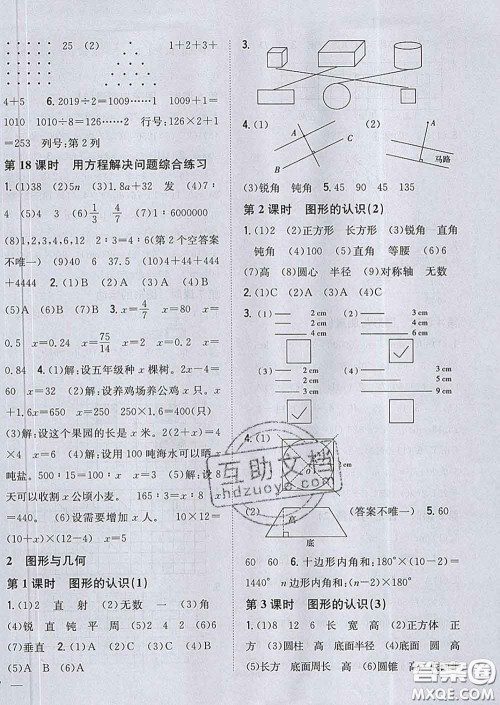 25 (2) 1+2+3+
4+5 6.2019÷2=1009……1 1009+1=
1010 1010÷8=126……2 行号:126×2+1
=253 列号:第2列
第18课时 用方程解决问题综合练习
1.(1)38 (2)5n (3)1.8a+32 (5)A (7)4∶
7 (4)5 (5)4 (6)1/3 4/7 (7)1∶6000000
(8)1,2,3,4,6,12 2∶3=4∶6(第2个空答案
不唯一) (9)40 6 37.5 (10)4+444+444+
4444 2.(1)C (2)A (3)B (4)C
(5)A (6)B (7)B 3.x=4/7 x=80 x=
0.5 x=0.24 x=75/14 x=2 x=
0.84 4.(1)解:设五年级种x棵树。2x-4=
60 x=32 (2)解:设养鸡场养公鸡x只。
(3)解:设这个果园的长是x米。2(2+x)=4
x=6 (4)解:设用100吨海水可以晒x
吨盐。
500∶15=100∶x x=3 (5)解:设8
天可以收割x公顷小麦。 165∶3=x∶8
x=440 (6)设需要增加x天。 10×12=
(10+x)×(12-4) x=5
2 图形与几何
第1课时 图形的认识(1)
1.(1)2 直 射 (2)无数 一 (3)角
(4)锐 直 钝 平 周 (5)2 4
(6)4 2 2.(1)C (2)C (3)A (4)D
(5)A (6)A
3.
4.(1) A C B (2) A 马路
(3)锐角 钝角 5.45 90 45 135
第2课时 图形的认识(2)
1.(1)18 (2)正方形 长方形 (3)锐角 直角
钝角 (4)100 (5)直角 等腰 (6)6
(7)高 (8)圆心 半径 (9)对称轴 无数
2.(1)C (2)A (3)A (4)C
3.(1) 2 cm (2) 2 cm
3 cm 4 cm
6 cm 6 cm
(3) 2 cm (4) 3 cm
2 cm 4 cm
3 cm 9 cm
4.(1)
(2) 高 底 (答案不唯一) 5.60
60 60 6.十边形内角和:180°×(10-2)=
1440° n边形内角和=(n-2)×180°
第3课时 图形的认识(3)
1.(1)8 12 6 长 宽 高 (2)正方体 正
方 (3)圆柱 高 底面半径 (4)3
(5)长方形 底面周长 高 (6)圆锥 高
互助文档
hdzuoye.com
答案圈
MXQE.COM